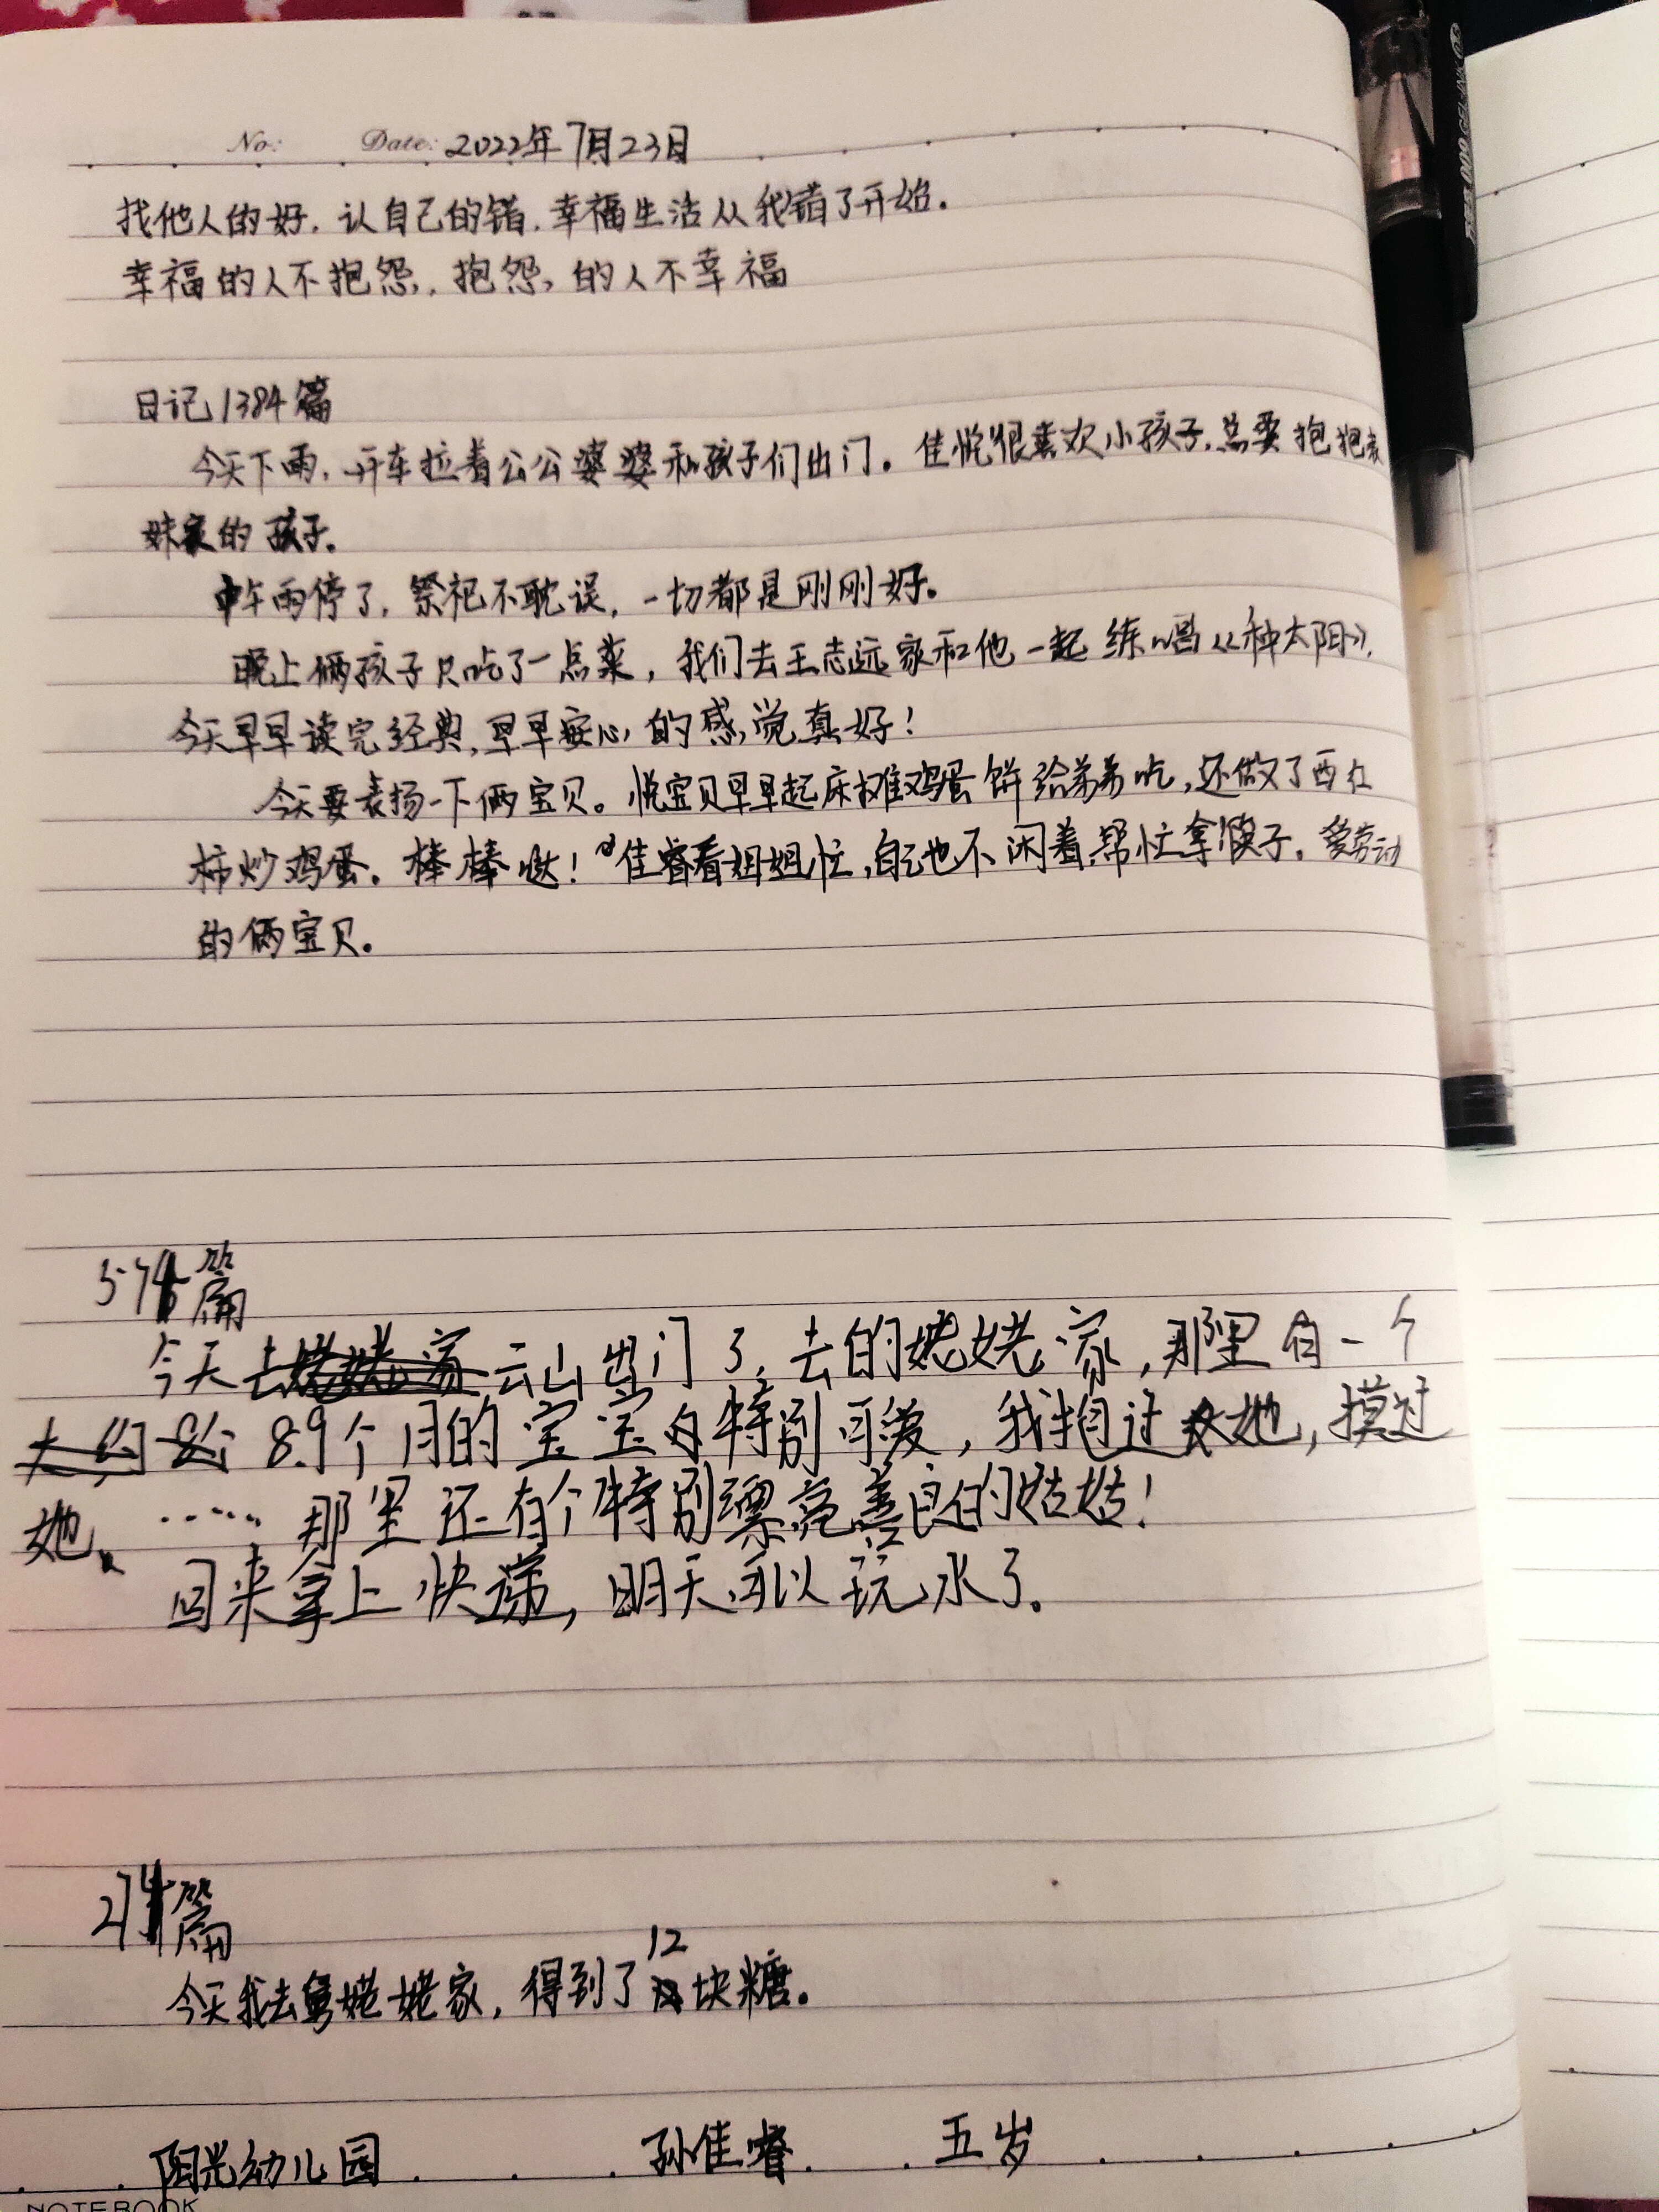 No: Date: 2022年7月23日
找他人的好，认自己的错，幸福生活从我错了开始。
幸福的人不抱怨，抱怨，的人不幸福
日记1384篇
今天下雨，开车拉着公公婆婆和孩子们出门。佳悦很喜欢小孩子，总要抱抱表
妹家的孩子。
中午雨停了，祭祀不耽误，一切都是刚刚好。
晚上俩孩子只吃了一点菜，我们去王志远家和他一起练唱《种太阳》，
今天早早读完经典，早早安心的感觉真好！
今天要表扬一下俩宝贝。悦宝贝早早起床摊鸡蛋饼给弟弟吃，还做了西红
柿炒鸡蛋。棒棒哒！佳睿看姐姐忙，自己也不闲着，帮忙拿筷子。爱劳动
的俩宝贝。
574篇
今天云山出门了，去的姥姥家，那里有一个
8.9个月的宝宝特别可爱，我抱过她，摸过
她、……那里还有个特别漂亮善良的姑姑！
回来拿上快递，明天可以玩水了。
214篇
今天我去舅姥姥家，得到了12块糖。
阳光幼儿园 孙佳睿 五岁
NOTEBOOK